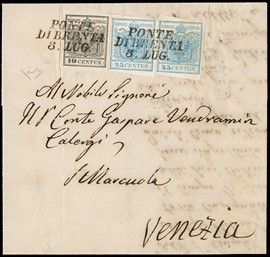 PONTE
DI BRENTA
8. LUG.
PONTE
DI BRENTA
8. LUG.
10 CENTES.
45 CENTES.
45 CENTES.
Al Nobile Signore
Il Sr Conte Gaspare Vendramin
Calergi
S Marcuola
Venezia